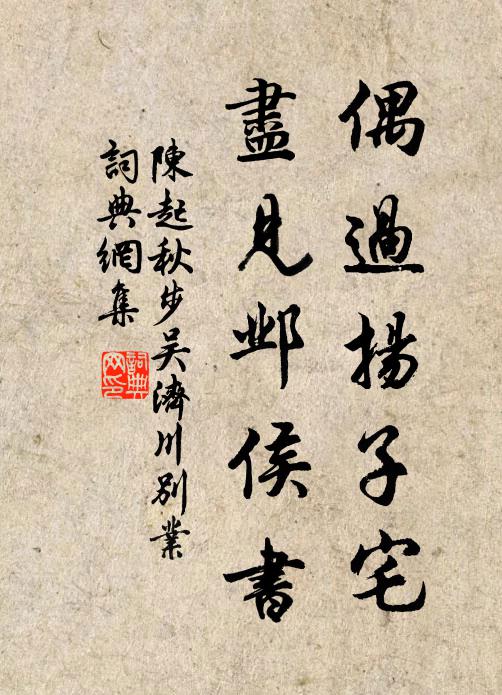 偶過揚子宅
盡見邺侯書
陳起秋步吴濟川別業
詞典網集
詞典
网印